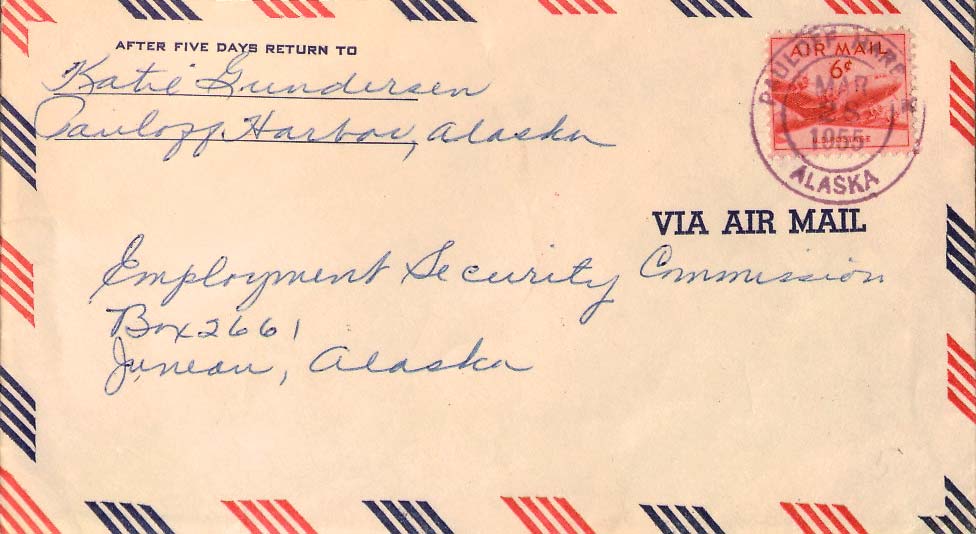 AFTER FIVE DAYS RETURN TO
Katie Gundersen
Pauloff Harbor, Alaska
AIR MAIL
6¢
U.S. POSTAGE
PAULOFF
MAR
1955
ALASKA
VIA AIR MAIL
Employment Security Commission
Box 2661
Juneau, Alaska